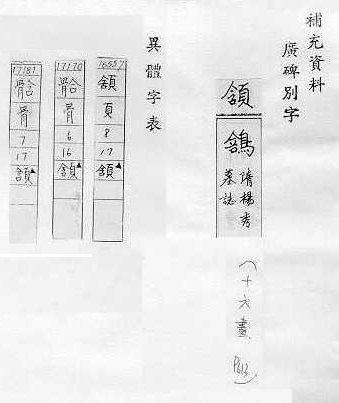 補充資料
廣碑別字
頷
隋楊秀
墓誌
(十六畫 P613)
異體字表
16557
頁
8
17
頷▲
17170
骨
6
16
頷▲
17181
骨
7
17
頷▲